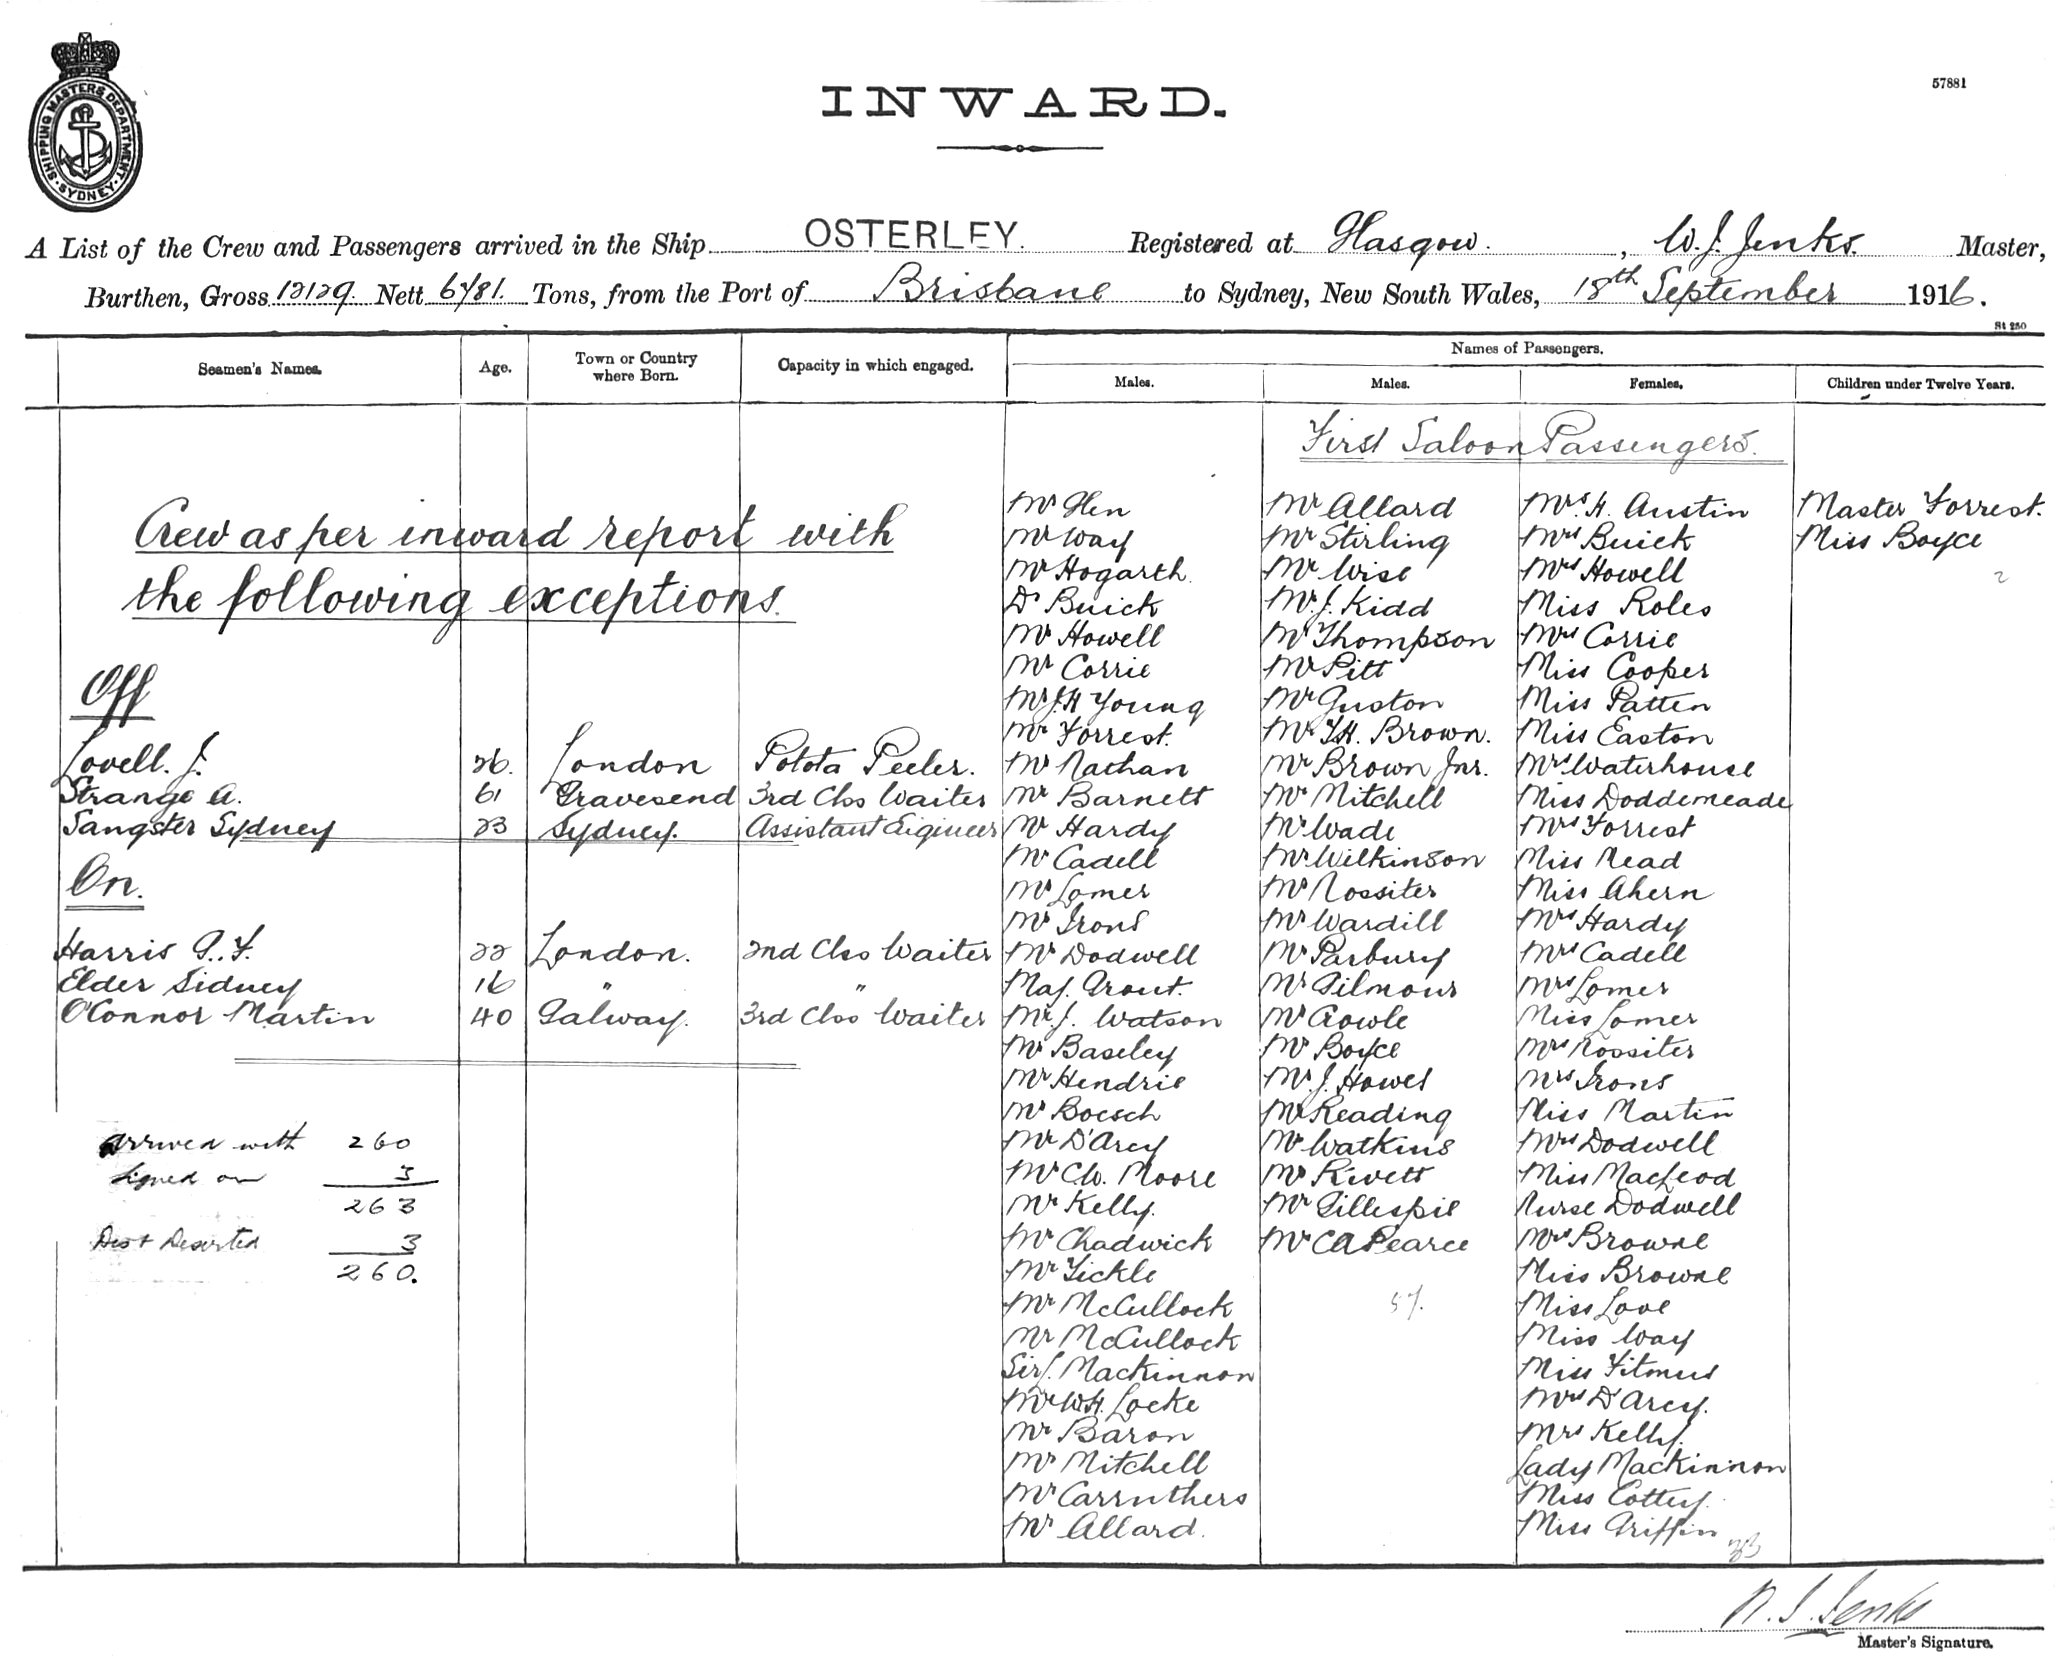 SHIPPING MASTERS DEPARTMENT
SYDNEY
57881
INWARD.
A List of the Crew and Passengers arrived in the Ship OSTERLEY. Registered at Glasgow. , W. J. Jenks. Master,
Burthen, Gross 12129. Nett 6781. Tons, from the Port of Brisbane to Sydney, New South Wales, 18th September 1916.
St 250
Seamen's Names. Age. Town or Country where Born. Capacity in which engaged. Names of Passengers.
Males. Males. Females. Children under Twelve Years.
First Saloon Passengers.
Crew as per inward report with
the following exceptions.
Off
Lovell. J. 26. London Potota Peeler.
Strange A. 61 Gravesend 3rd Clss Waiter
Sangster Sydney 23 Sydney. Assistant Egineer
On.
Harris G. F. 22 London. 2nd Clss Waiter
Elder Sidney 16 " "
O'Connor Martin 40 Galway. 3rd Clss Waiter
Arrived with 260
Signed on 3
263
Dis+ Deserted 3
260.
Mr Glen
Mr Way
Mr Hogarth.
Dr Buick
Mr Howell
Mr Corrie
Mr J.H Young
Mr Forrest.
Mr Nathan
Mr Barnett
Mr Hardy
Mr Cadell
Mr Lomer
Mr Irons
Mr Dodwell
Maj. Grout.
Mr. J. Watson
Mr Baseley
Mr Hendrie
Mr Boesch
Mr D'Arcy
Mr C.W. Moore
Mr Kelly.
Mr Chadwick
Mr Tickle
Mr McCullock
Mr McCullock
Sir J. Mackinnon
Mr W.H. Locke
Mr Baron
Mr Mitchell
Mr Carruthers
Mr Allard.
Mr Allard
Mr Stirling
Mr Wise
Mr. J. Kidd
Mr Thompson
Mr Pitt
Mr Guston
Mr T.H. Brown.
Mr Brown Jnr.
Mr Mitchell
Mr Wade
Mr Wilkinson
Mr Rossiter
Mr Wardill
Mr Parbury
Mr Gilmour
Mr Gowle
Mr Boyce
Mr. J. Howes
Mr Reading
Mr Watkins
Mr Rivett
Mr Gillespie
Mr C A Pearce
57.
Mrs. H. Austin
Mrs Buick
Mrs Howell
Miss Roles
Mrs Corrie
Miss Cooper
Miss Patten
Miss Easton
Mrs Waterhouse
Miss Doddemeade
Mrs Forrest
Miss Mead
Miss Ahern
Mrs Hardy
Mrs Cadell
Mrs Lomer
Miss Lomer
Mrs Rossiter
Mrs Irons
Miss Martin
Mrs Dodwell
Miss MacLeod
Nurse Dodwell
Mrs Browne
Miss Browne
Miss Love
Miss Way
Miss Titmus
Mrs D'Arcy.
Mrs Kelly.
Lady Mackinnon
Miss Cottey.
Miss Griffin
33
Master Forrest.
Miss Boyce
2
W. J. Jenks
Master's Signature.